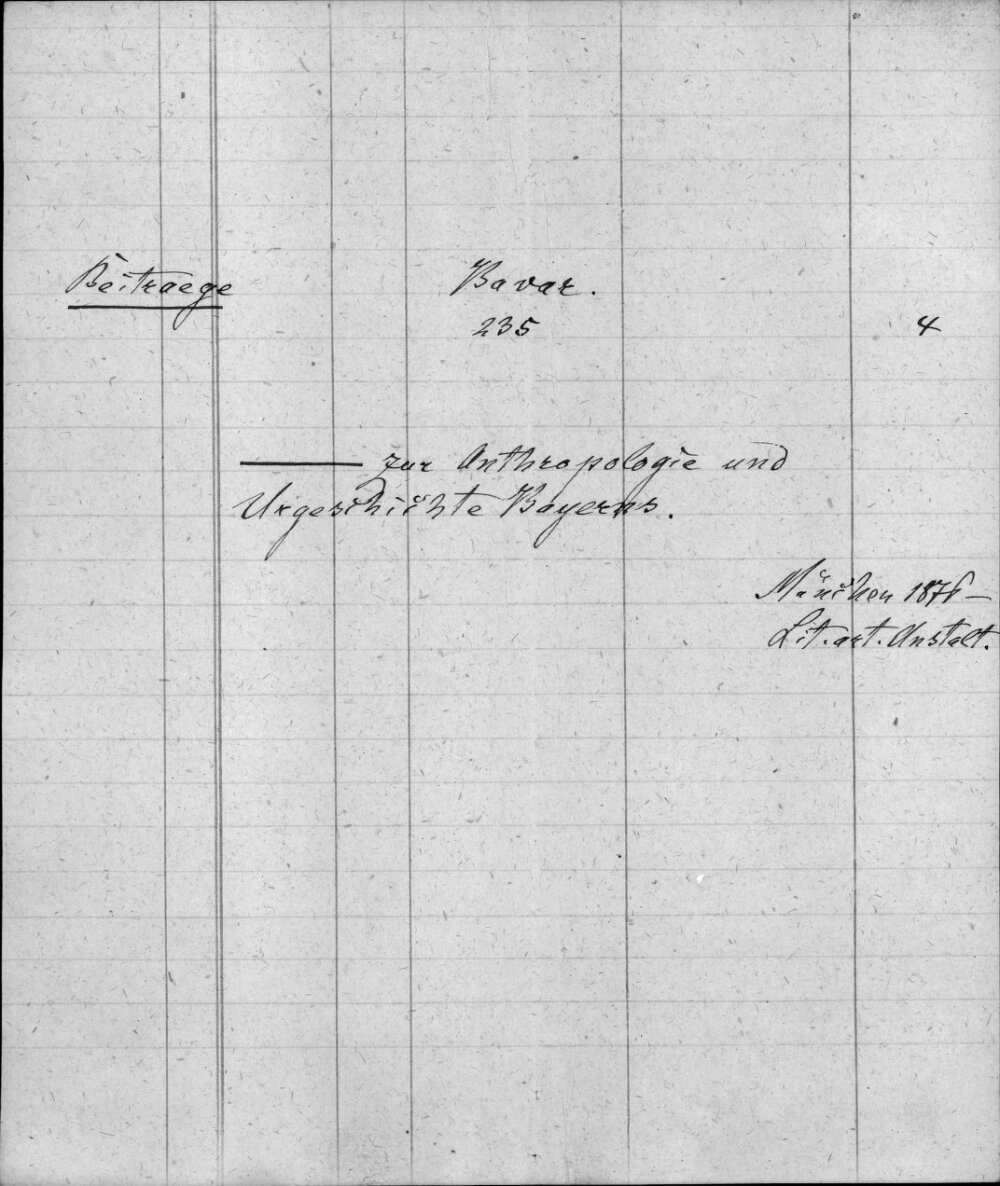 Beitraege
Bavar.
235
4
——— zur Anthropologie und
Urgeschichte Bayerns.
München 1876 –
Lit. art. Anstalt.